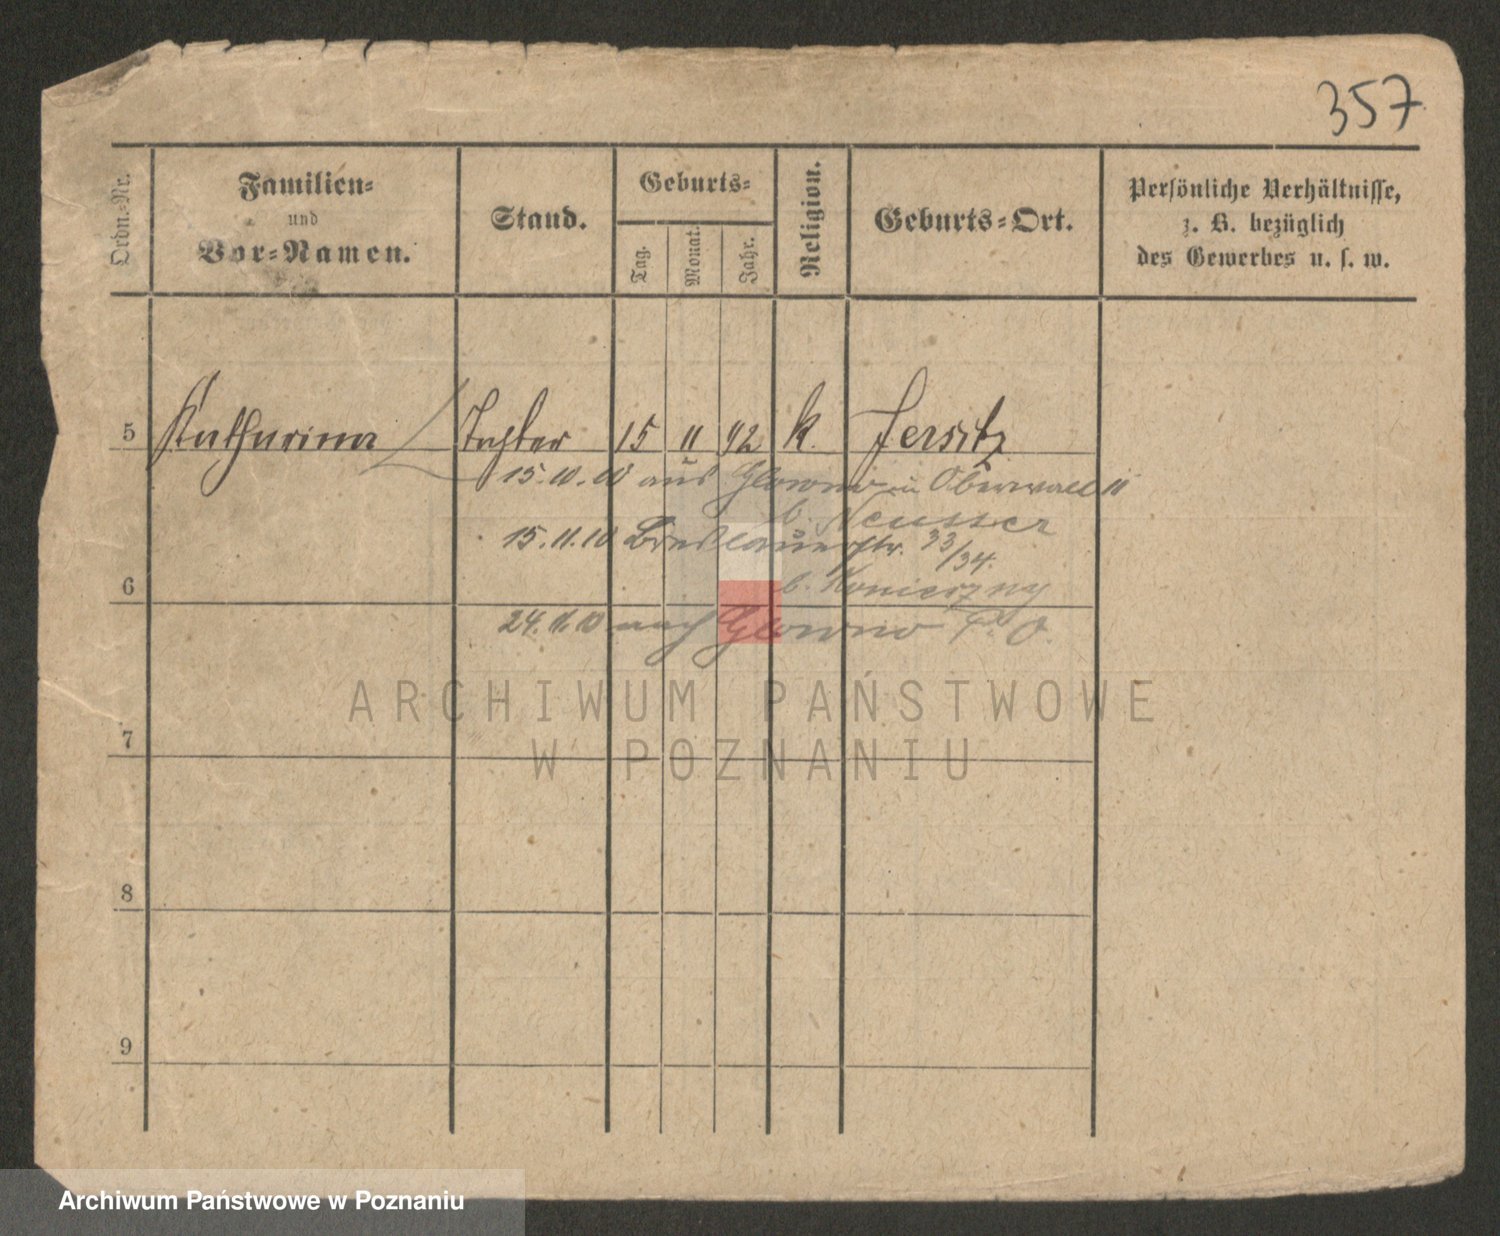 357
Ordn.-Nr.
Familien-
und
Vor-Namen.
Stand.
Geburts-
Tag.
Monat.
Jahr.
Religion.
Geburts-Ort.
Persönliche Verhältnisse,
z. B. bezüglich
des Gewerbes u. s. w.
5 Katharina Tochter 15 11 92 k. Jersitz
15.10.00 aus Glowno Oberwall 11
b. Neusser
15.11.10 Breslauerstr. 33/34.
6 b. Konieczny
24.11.10 nach Glowno P. O.
ARCHIWUM PAŃSTWOWE
7
W POZNANIU
8
9
Archiwum Państwowe w Poznaniu